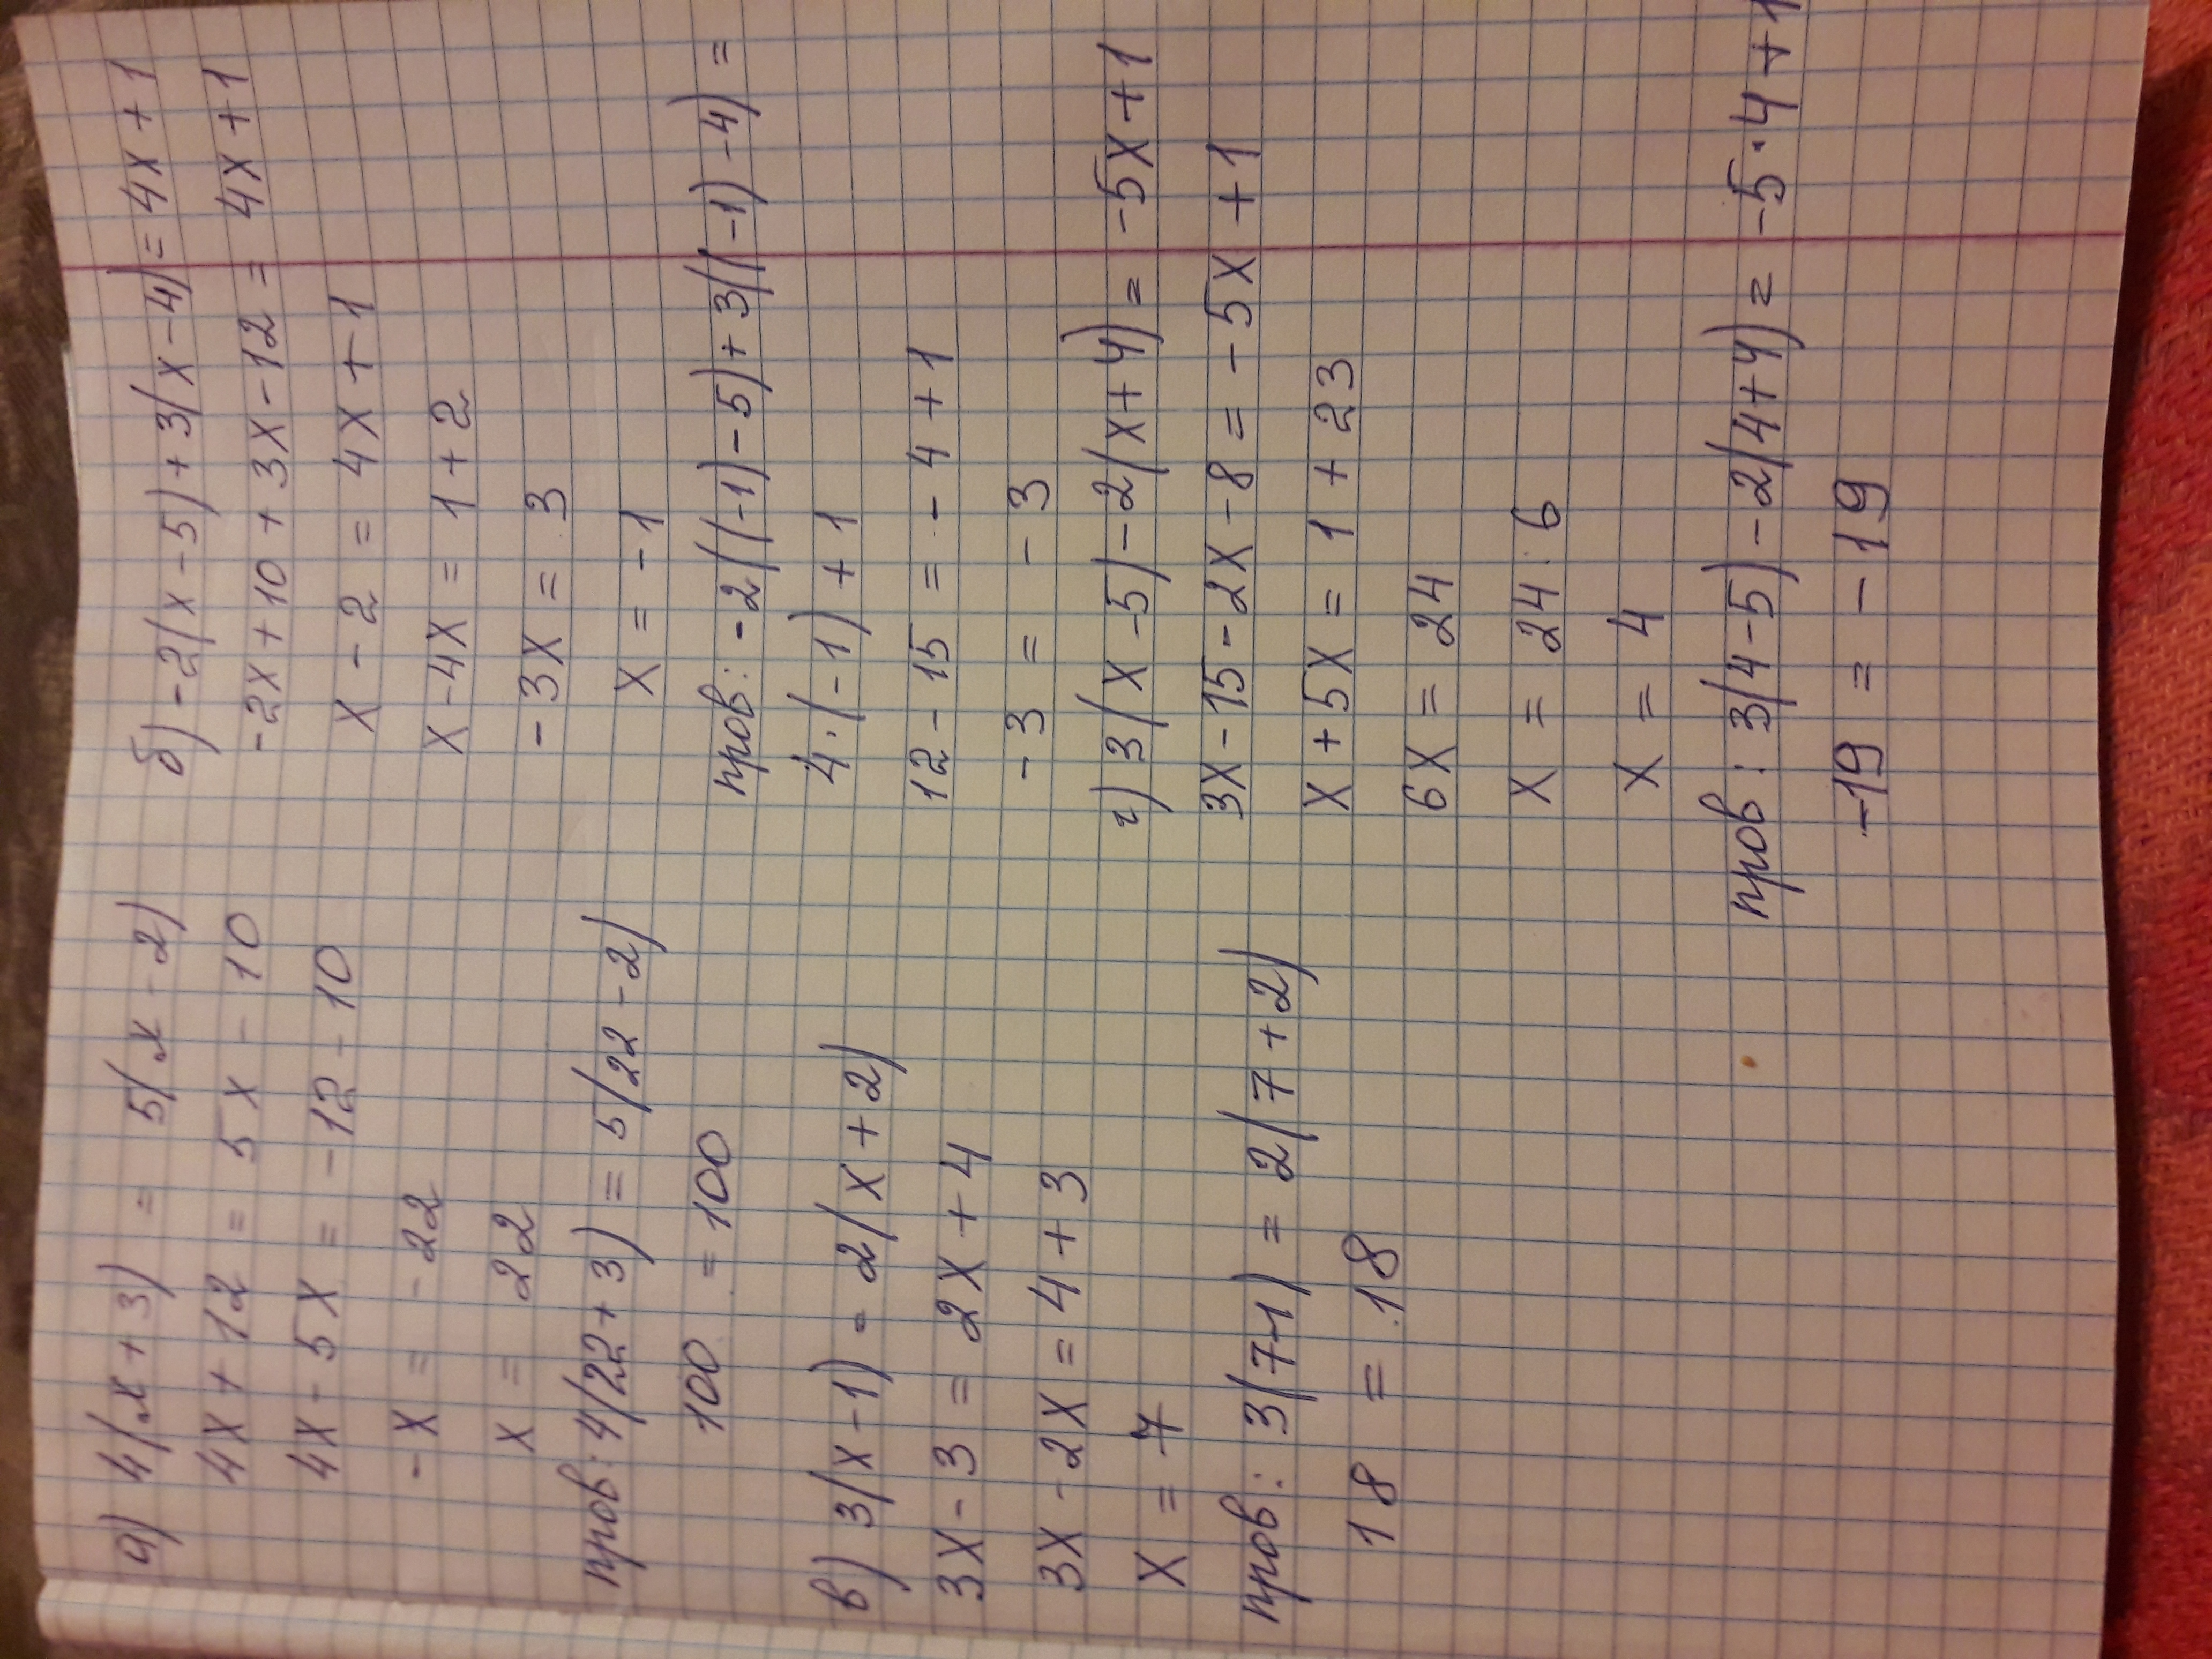 а) 4(x+3) = 5(x-2)
4x+12 = 5x-10
4x-5x = -12-10
-x = -22
x = 22
пров: 4(22+3) = 5(22-2)
100 = 100
в) 3(x-1) = 2(x+2)
3x-3 = 2x+4
3x-2x = 4+3
x = 7
пров: 3(7-1) = 2(7+2)
18 = 18
б) -2(x-5)+3(x-4)=4x+1
-2x+10+3x-12 = 4x+1
x-2 = 4x+1
x-4x = 1+2
-3x = 3
x = -1
пров: -2((-1)-5)+3((-1)-4) =
4·(-1)+1
12-15 = -4+1
-3 = -3
г) 3(x-5)-2(x+4) = -5x+1
3x-15-2x-8 = -5x+1
x+5x = 1+23
6x = 24
x = 24:6
x = 4
пров: 3(4-5)-2(4+4) = -5·4+1
-19 = -19